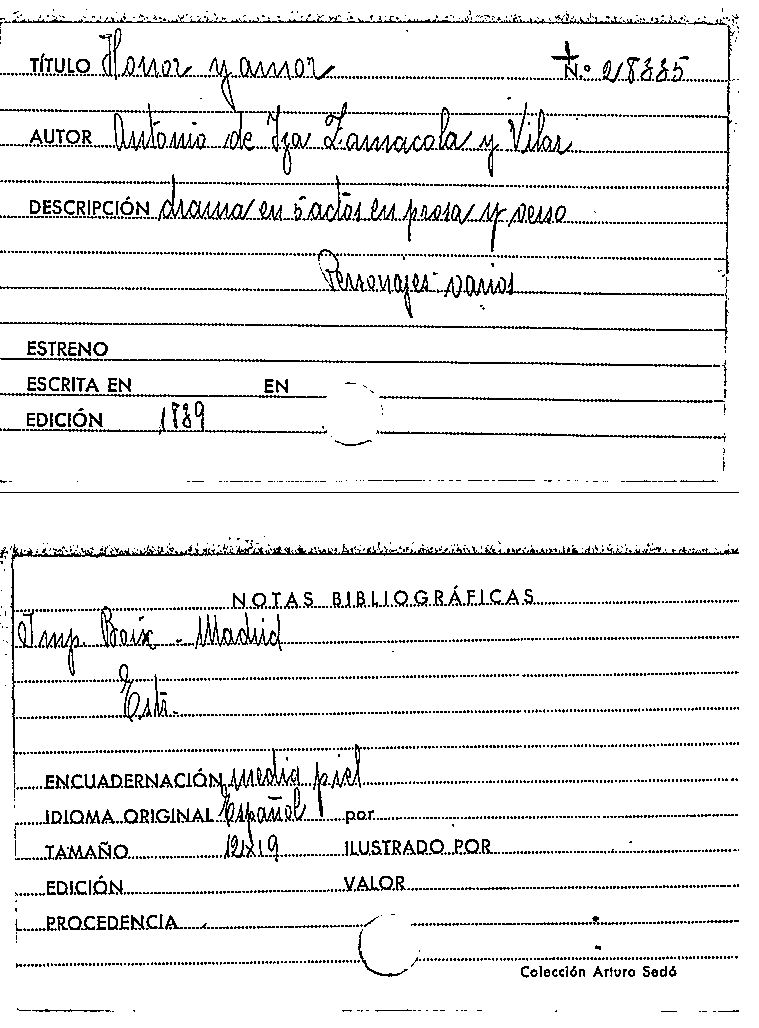 TÍTULO Honor y amor N.º 218335
AUTOR Antonio de Iza Zamacola y Vilar
DESCRIPCIÓN drama en 5 actos en prosa y verso
Personajes varios
ESTRENO
ESCRITA EN EN
EDICIÓN 1839
NOTAS BIBLIOGRÁFICAS
Imp Boix - Madrid
ENCUADERNACIÓN media piel
IDIOMA ORIGINAL Español por
TAMAÑO 12x19 ILUSTRADO POR
EDICIÓN VALOR
PROCEDENCIA
Colección Arturo Sedó